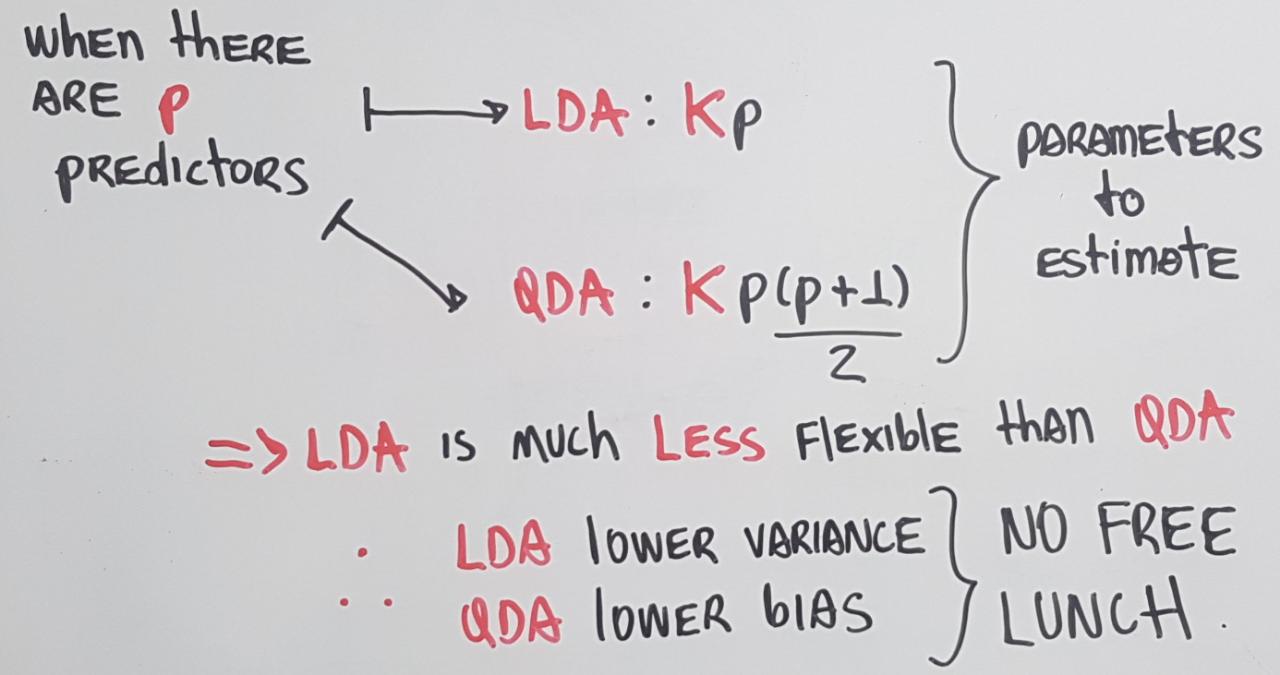 WHEN THERE
ARE p
PREDICTORS
LDA : Kp
QDA : K p(p+1)/2
PARAMETERS
to
EStimate
=> LDA IS MUCh LESS FlExIble than QDA
∴ LDA lOWER VARIANCE
QDA lOWER bIAS
NO FREE
LUNCH.